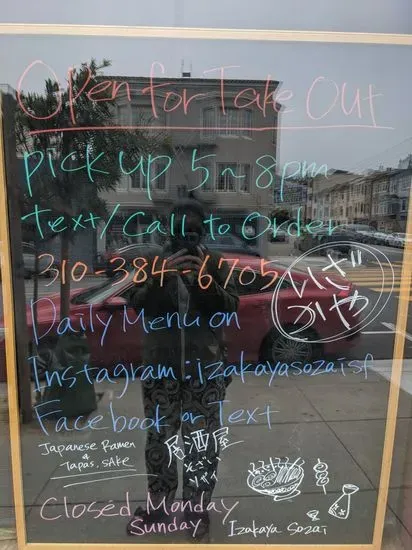 Open for Take Out
pick up 5~8pm
text/Call to Order
310-384-6705
いざ
かや
Daily Menu on
Instagram: izakayasozaisf
Facebook or Text
Japanese Ramen
& Tapas, SAke
居酒屋
Closed Monday
Sunday
Izakaya Sozai